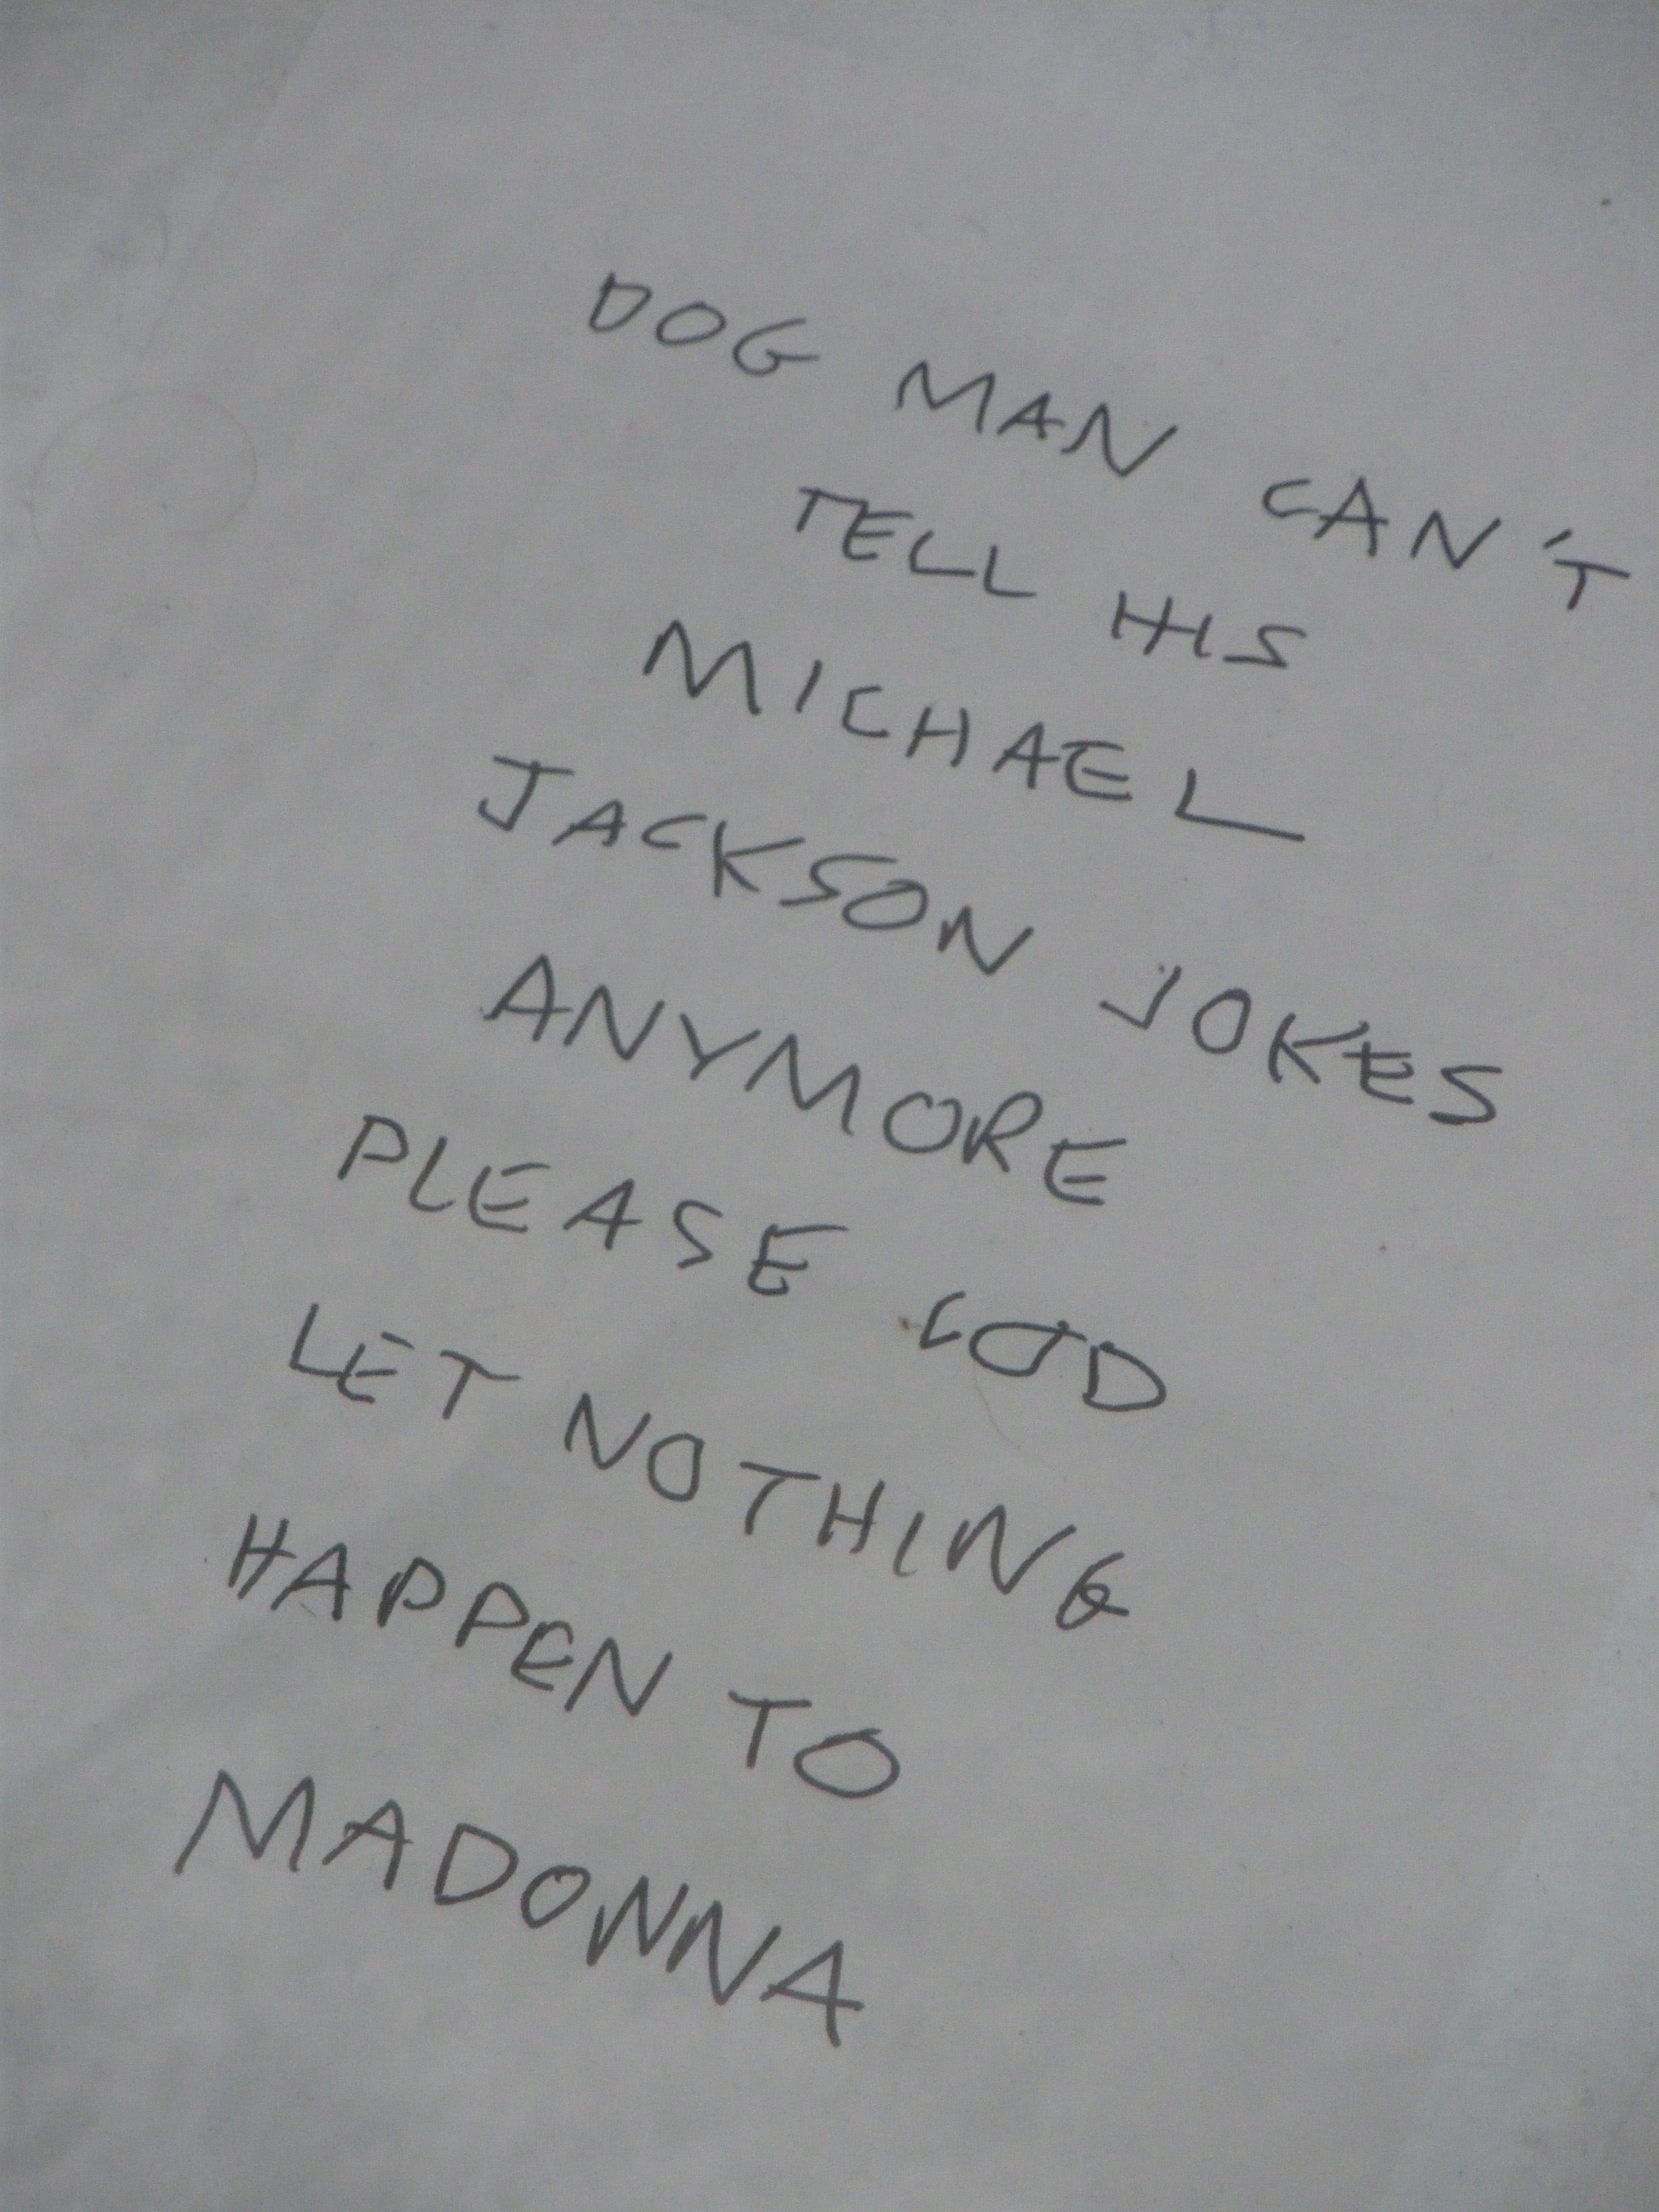 DOG MAN CAN'T
TELL HIS
MICHAEL
JACKSON JOKES
ANYMORE
PLEASE GOD
LET NOTHING
HAPPEN TO
MADONNA